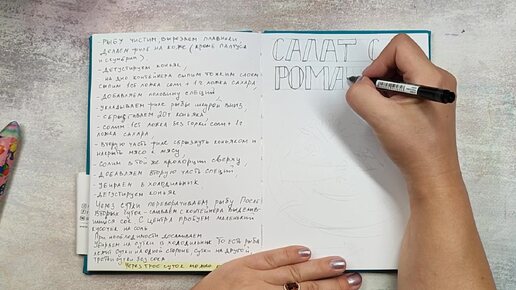 - РЫБУ ЧИСТИМ, ВЫРЕЗАЕМ ПЛАВНИКИ
ДЕЛАЕМ ФИЛЕ НА КОЖЕ (КРОМЕ ПАЛТУСА
И СКУМБРИИ).
- ДЕГУСТИРУЕМ КОНЬЯК,
НА ДНО КОНТЕЙНЕРА СЫПИМ ТОНКИМ СЛОЕМ
СЫПИМ ЛОЖКА СОЛИ + 1/2 ЛОЖКА САХАРА,
- ДОБАВЛЯЕМ ПОЛОВИНУ СПЕЦИЙ,
УКЛАДЫВАЕМ ФИЛЕ РЫБЫ ШКУРОЙ ВНИЗ
- СБРЫЗГИВАЕМ КОНЬЯКА
- СОЛИМ ЛОЖКА БЕЗ СОЛИ +
ЛОЖКА САХАРА
- ВТОРУЮ ЧАСТЬ ФИЛЕ СБРЫЗНУТЬ КОНЬЯКОМ И
НАКРЫТЬ МЯСО К МЯСУ
- СОЛИМ В ТОЙ ЖЕ ПРОПОРЦИИ СВЕРХУ
- ДОБАВЛЯЕМ ВТОРУЮ ЧАСТЬ СПЕЦИЙ
- УБИРАЕМ В ХОЛОДИЛЬНИК
- ДЕГУСТИРУЕМ КОНЬЯК
ЧЕРЕЗ СУТКИ ПЕРЕВОРАЧИВАЕМ РЫБУ ПОСЛЕ
ВТОРЫХ СУТОК - СЛИВАЕМ С КОНТЕЙНЕРА ВЫДЕЛИВ-
ШИЙСЯ СОК. С ЦЕНТРА ПРОБУЕМ МАЛЕНЬКИЙ
КУСОЧЕК НА СОЛЬ
ПРИ НЕОБХОДИМОСТИ ДОСАЛИВАЕМ
УБИРАЕМ НА СУТКИ В ХОЛОДИЛЬНИК ТО ЕСТЬ РЫБА
ЛЕЖИТ СУТКИ НА ОДНОЙ СТОРОНЕ, СУТКИ НА ДРУГОЙ
ТРЕТЬИ СУТКИ БЕЗ СОКА
ЧЕРЕЗ ТРОЕ СУТОК МОЖНО
САЛАТ С
РОМА